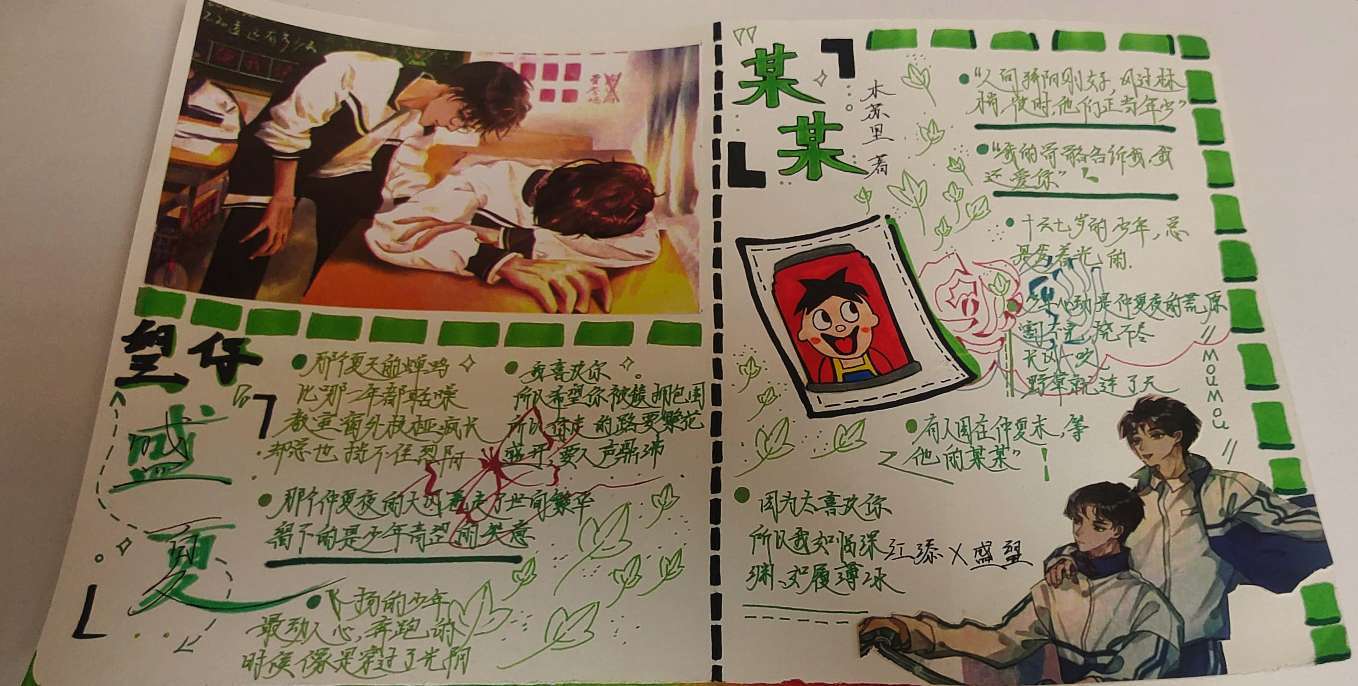 望仔
盛
夏
那个夏天的蝉鸣
比哪一年都聒噪
教室窗外枝桠疯长
却怎也挡不住烈阳
我喜欢你
所以希望你被簇拥包围
所以你走的路要繁花
盛开,要人声鼎沸
那个仲夏夜的大雨卷走了世间繁华
留下的是少年青涩的爱意
飞扬的少年
最动人心,奔跑的
时候像是穿过了光阴
某
某
木苏里 著
“人间骄阳刚好,风过林
梢,彼时他们正当年少”
“我的哥哥告诉我,我
还爱你”
十六七岁的少年,总
是发着光的.
心动是仲夏夜的荒原
割不完烧不尽
长风一吹
野草就连了天
moumou
有人困在仲夏末,等
他的某某”
因为太喜欢你
所以我如临深
渊、如履薄冰
江添×盛望